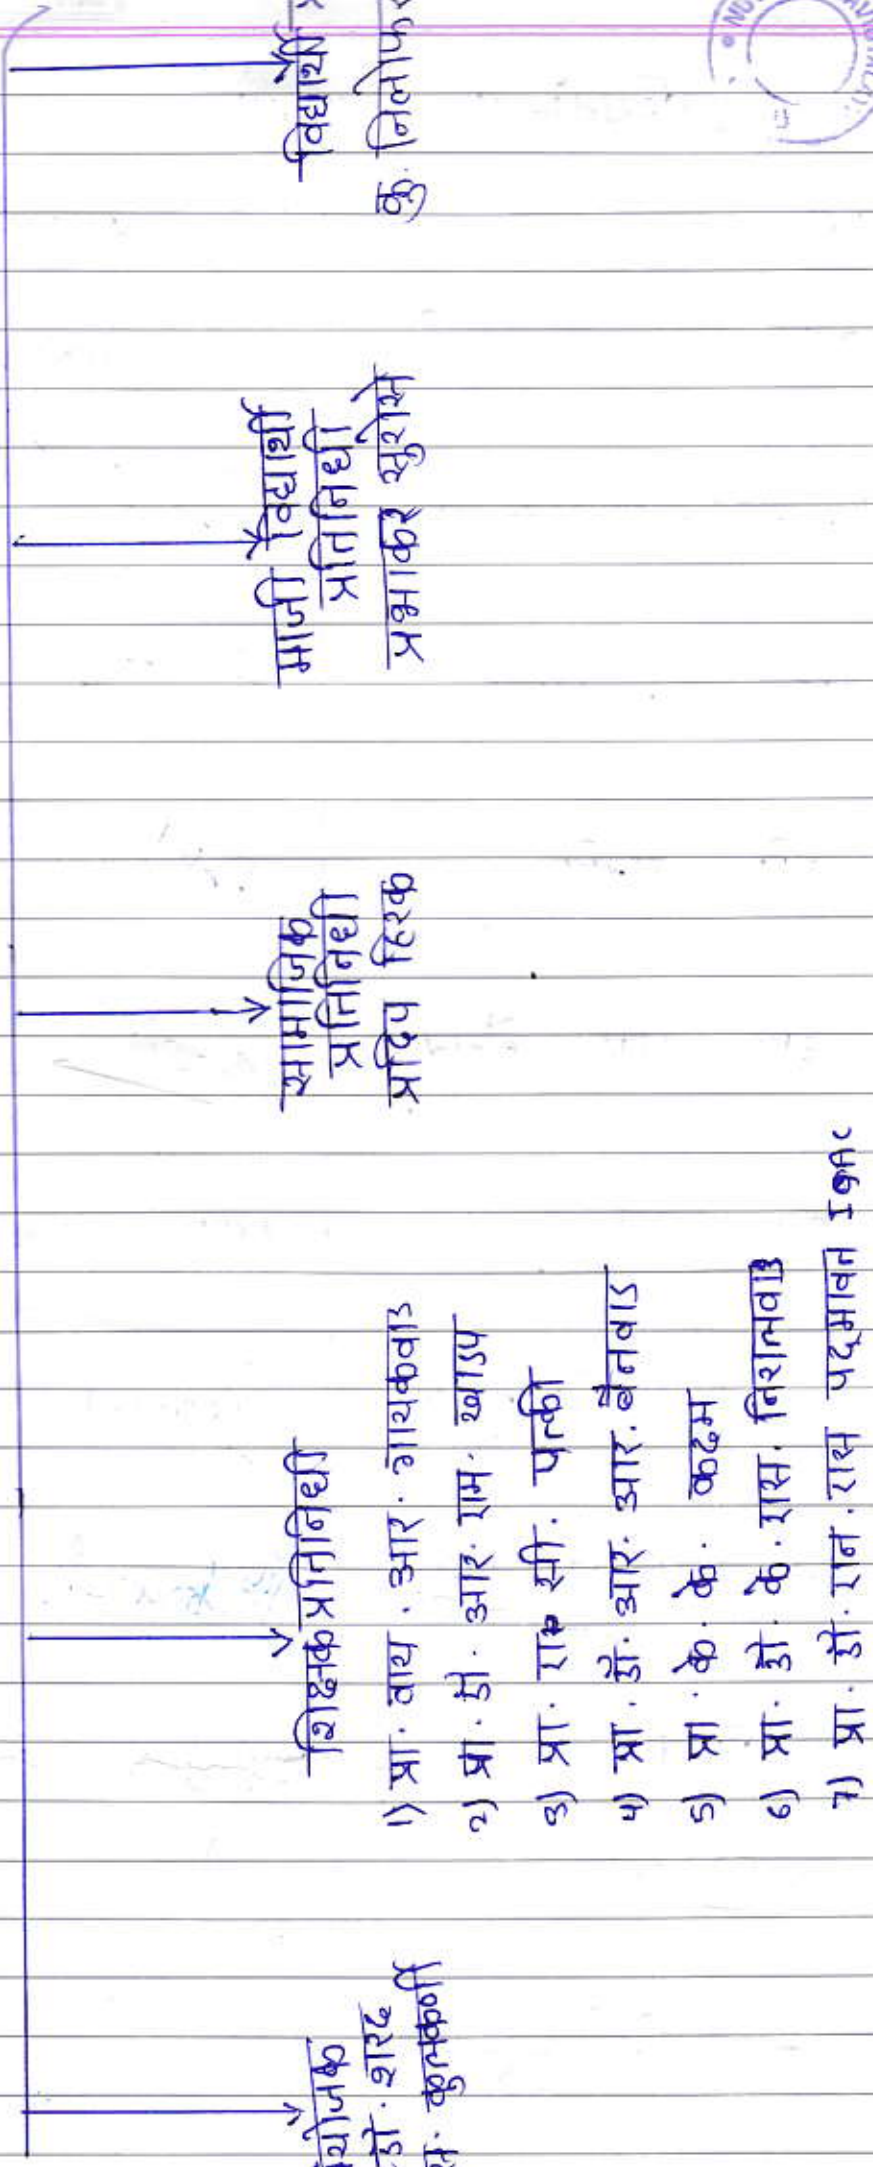 योजक
डॉ. शरद
कुलकर्णी
शिक्षक प्रतिनिधी
1) प्रा. वाय. आर. गायकवाड
2) प्रा. डॉ. आर. एम. खाडप
3) प्रा. सी. पत्की
4) प्रा. डॉ. आर. आर. बैनवाड
5) प्रा. के. के. कदम
6) प्रा. डॉ. के. एस. निरालवाड
7) प्रा. डॉ. एन. एस पदमावत IQAC
सामाजिक
प्रतिनिधी
प्रदिप हिरक
माजी विद्यार्थी
प्रतिनिधी
प्रभाकर सुरोसे
विद्यार्थी
कु.